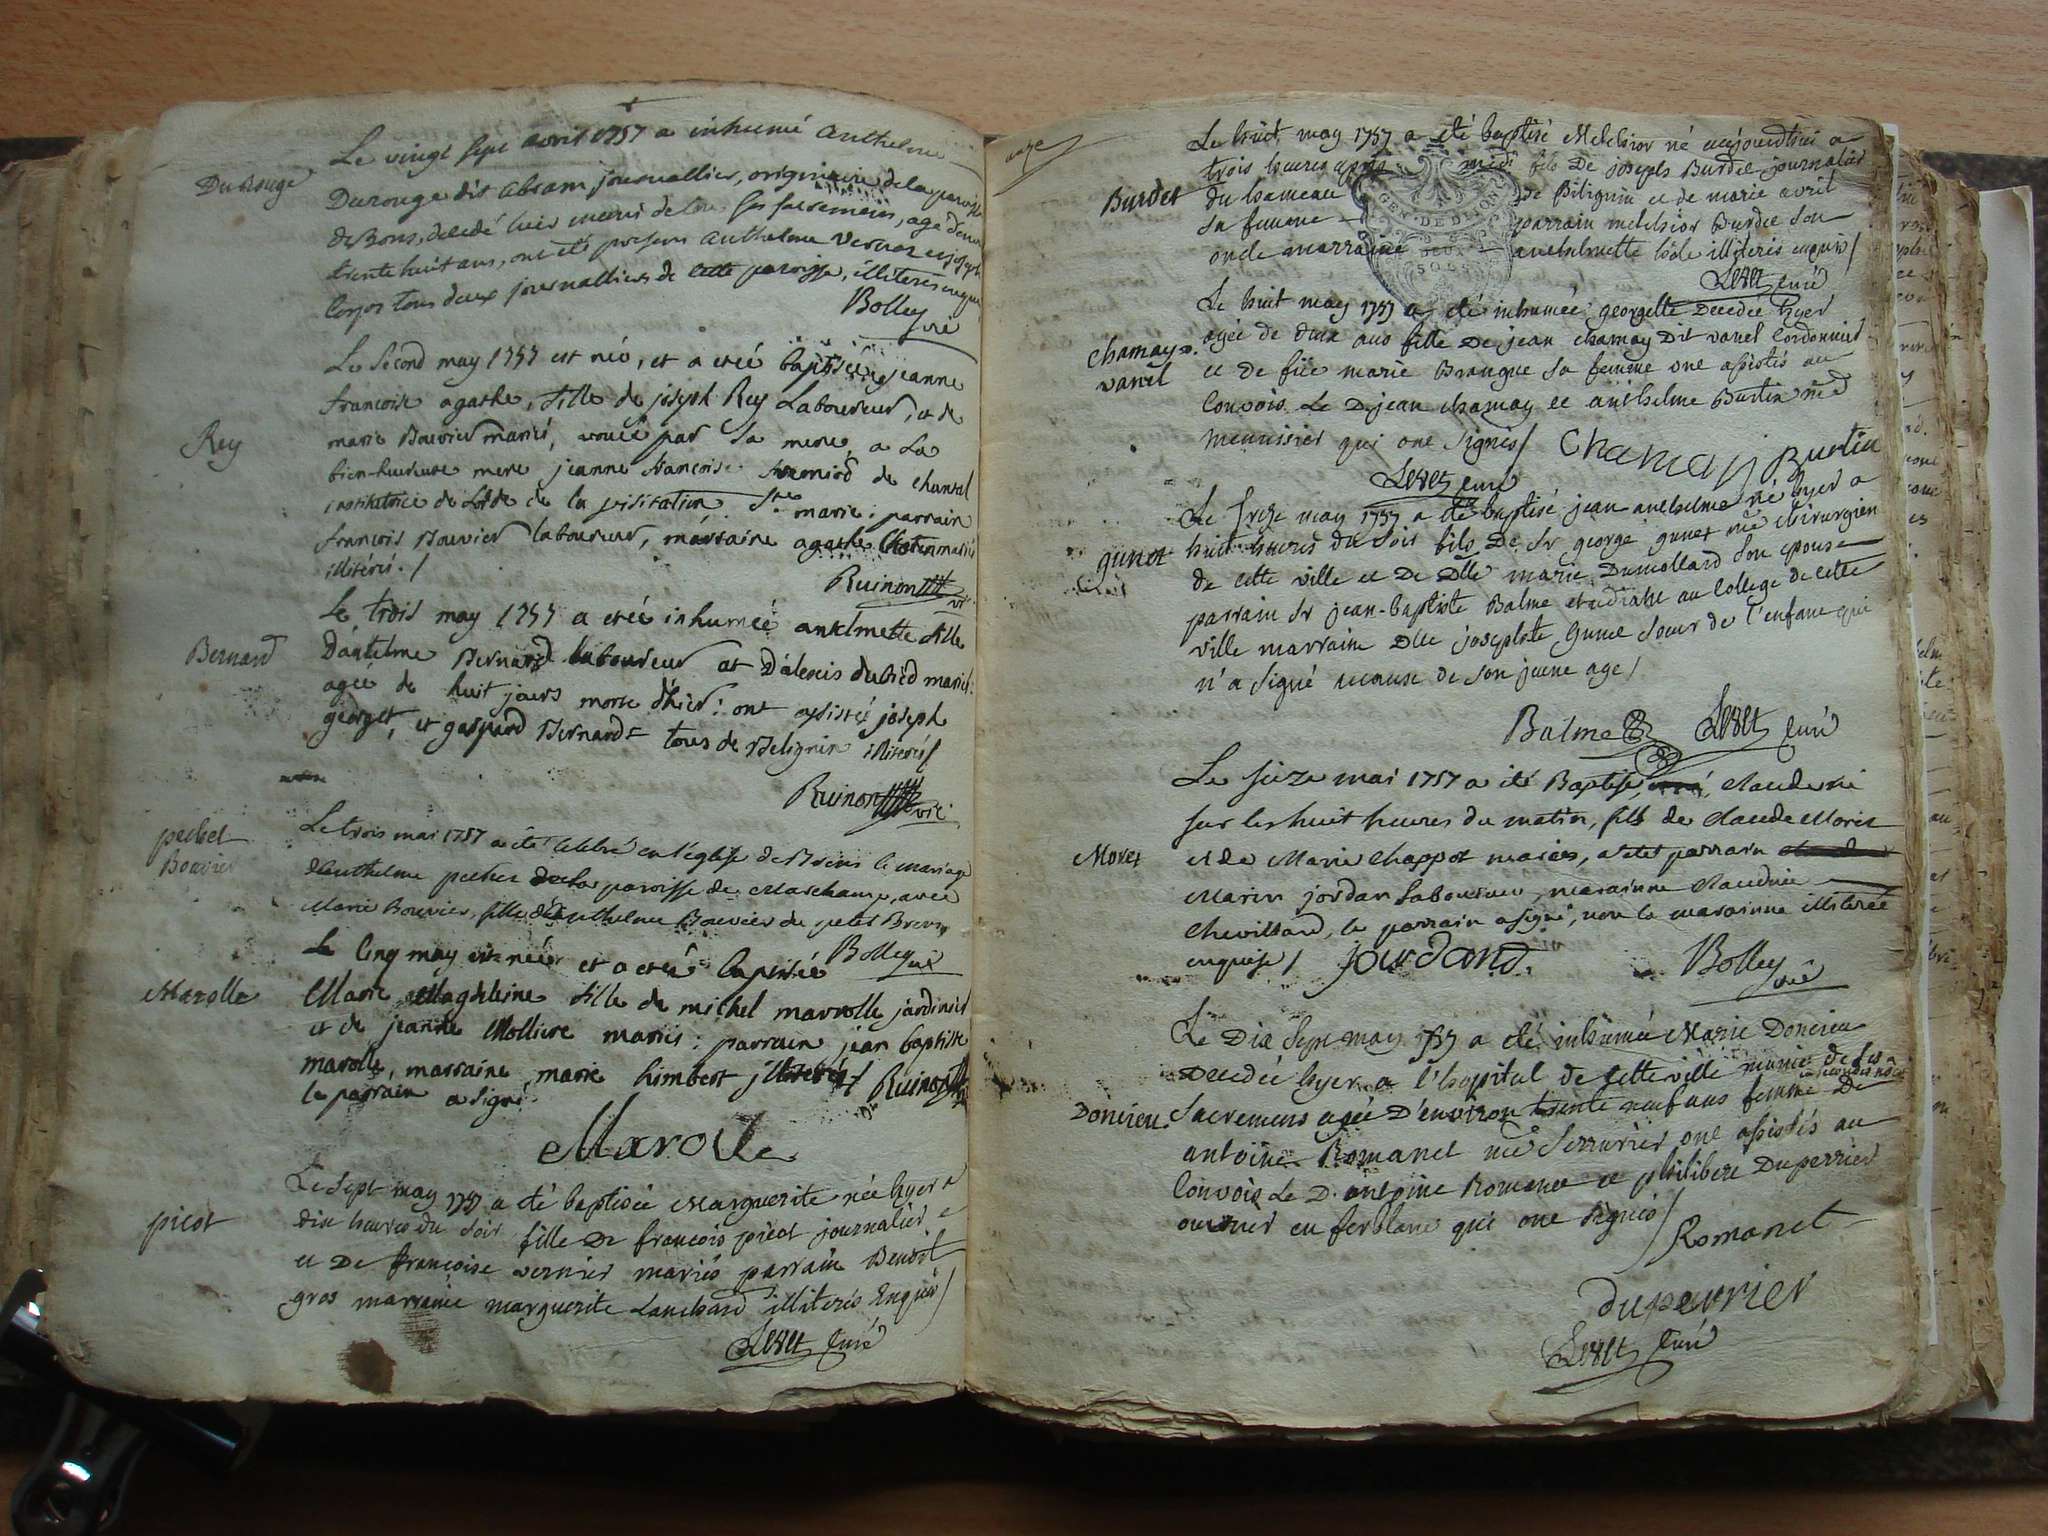 Le vingt sept avril 1757 a inhumé Anthelme
Durouge
Durouge dit Abram journallier, originaire de la paroisse
de Bons, decedé hier muni de tous ses sacremens, agé d'environ
trente huit ans, ont été presens Anthelme Vernaz et joseph
tous deux journalliers de cette paroisse, illiteres enquis
Bolley vic
Le sécond may 1757 est néé, et a etéé baptiséé jeanne
francoise agathe, fille de joseph Rey Laboureur, et de
Rey
marie Bouvier mariés, vouéé par sa mere, a La
bien-hureuse mere jeanne francoise fremiod de chantal
institutrice de Lordre de la visitation Ste marie: parrain
francois Bouvier laboureur, marraine agathe mariés
illiterés./
Ruinon vic
Le trois may 1757 a etéé inhuméé anthelmette fille
Bernard
D'antelme Bernard laboureur et D'alexis dubied mariés:
agéé de huit jours morte d'hier: ont assistés joseph
georget, et gaspard Bernard = tous de Belignin illiterés/
Ruinon vic
pechet
Bouvier
Le trois mai 1757 a été célébré en l'église de Brens le mariage
d'Anthelme pechet de la paroisse de Marchamp, avec
Marie Bouvier, fille d'Anthelme Bouvier du petit Brens
Bolley vic
Le Cinq may est néé et a etéé baptiséé
Marolle
Marie Magdeleine fille de michel marolle jardinier
et de jeanne Molliere mariés: parrain jean baptiste
marolle, marraine, marie himbert illiterés/
le parrain a signé.
Ruinon
Marolle
Le sept may 1757 a été baptisée Marguerite née hyer a
picot
dix heures du soir fille de francois picot journalier
et De francoise vernier mariés parrain Benoit
gros marraine marguerite Lanchard illiterés Enquis/
Levet Curé
onze
Le huit may 1757 a été baptisé Melchior né aujourdhui a
trois heures après midi fils De joseph Burdet journalier
Burdet
du hameau de Bilignin et de marie avril
sa femme parrain melchior Burdet son
GEN · DE DIJON
DEUX
SOLS
oncle marraine anthelmette illiteris enquis/
Levet curé
Le huit may 1757 a été inhumée georgette Decedée hyer
Chamay D.
vanel
agée de deux ans fille De jean chamay Dit vanel Cordonnier
et de marie Brangue sa femme ont assistés au
Convois Le D. jean chamay et anthelme Burtin me
menuisier qui ont signés/
Chamay Burtin
Levet curé
Le treize may 1757 a été baptisé jean anthelme né hyer a
gunet
huit heures du soir fils De Sr george gunet me chirurgien
de cette ville et De Dlle marie Dumollard son epouse
parrain Sr jean-baptiste Balme etudiant au College de cette
ville marraine Dlle josephte gunet soeur de l'enfant qui
n'a signé acause de son jeune age/
Balme Levet Curé
Le seize mai 1757 a été Baptisé Claude né
sur les huit heures du matin, fils de Claude Moret
Moret
et de Marie Chappot mariés, a été parrain
Marin jordan Laboureur, marainne Claudine
Chevillard, le parrain a signé, non la marainne illiterée
enquise/ jourdand.
Bolley vic
Le Dix sept may 1757 a été inhumée Marie Doncieu
Decedée hyer a l'hopital de cette ville munie de ses
Doncieu.
Sacremens agée D'environ trente neuf ans femme en secondes noces De
antoine Romanet me Serrurier ont assistés au
Convois Le D. antoine Romanet et philibert Duperrier
ouvrier en ferblanc qui ont signés/
Romanet
dupeyrier
Levet Curé